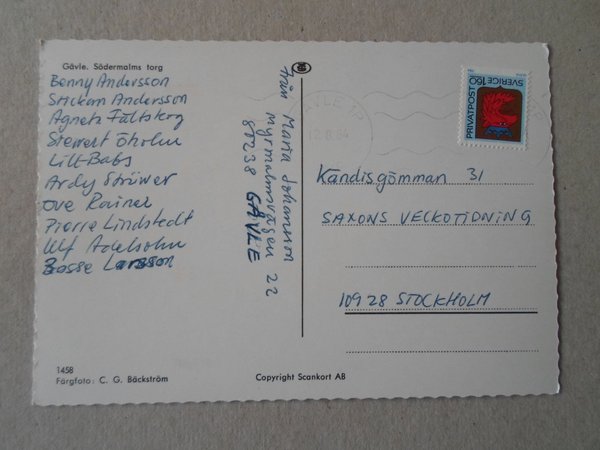 Gävle. Södermalms torg
Benny Andersson
Stickan Andersson
Agneta Fältskog
Stewert Öholm
Lill-Babs
Ardy Strüwer
Ove Rainer
Pierre Lindstedt
Ulf Adelsohn
Bosse Larsson
1458
Färgfoto: C. G. Bäckström
från Maria Johansson
Myrmalmsvägen 22
80238 GÄVLE
Copyright Scankort AB
GÄVLE 1
12.8.84
PRIVATPOST
SVERIGE 160
Kändisgömman 31
SAXONS VECKOTIDNING
10928 STOCKHOLM